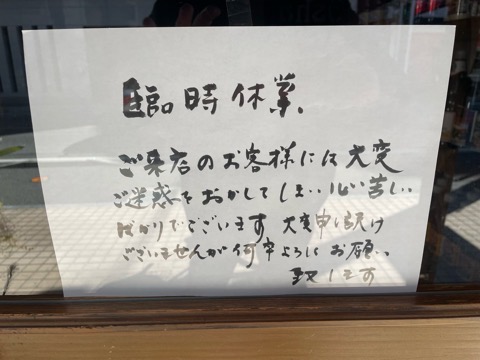 臨時休業
ご来店のお客様には大変
ご迷惑をおかしてしまい心苦しい
ばかりでございます 大変申し訳け
ございませんが何卒よろしくお願い
致します